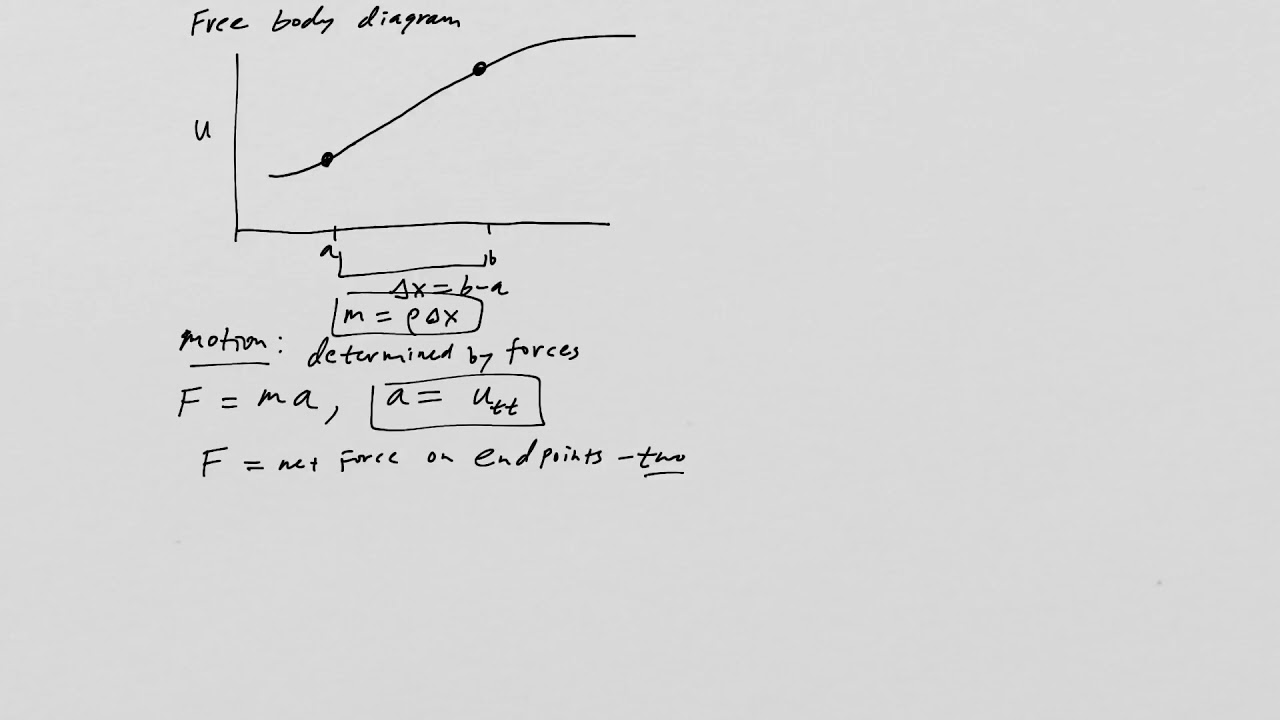 Free body diagram
u
a
b
Δx = b-a
m = ρΔx
motion: determined by forces
F = ma, a = u_tt
F = net Force on endpoints - two